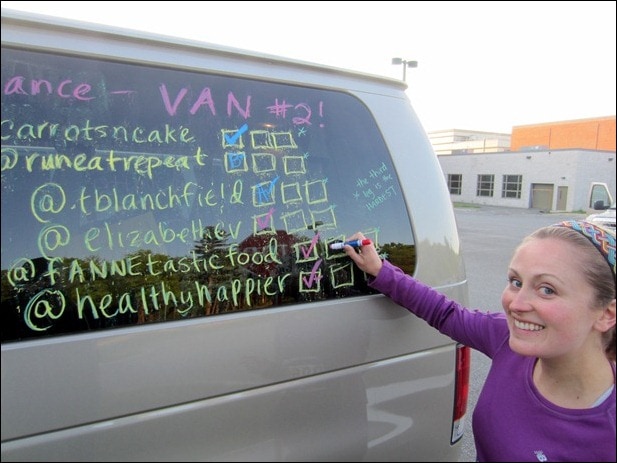 ance - VAN #2!
carrotsncake
@runeatrepeat
@tblanchfield
@elizabethev
@fANNEtasticfood
@healthyhappier
the third
leg is the